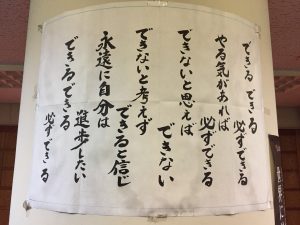 できる できる
必ずできる
やる気があれば
必ずできる
できないと思えば
できない
できないと考えず
できると信じ
永遠に自分は
進歩したい
できるできる
必ずできる